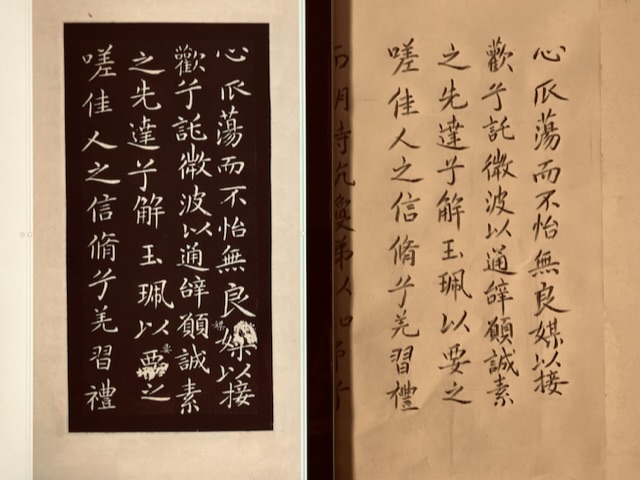 心𠂢蕩而不怡無良媒以接
歡兮託微波以通辭願誠素
之先達兮解玉珮以要之
嗟佳人之信脩兮羌習禮
心𠂢蕩而不怡無良媒以接
歡兮託微波以通辭願誠素
之先達兮解玉珮以要之
嗟佳人之信脩兮羌習禮